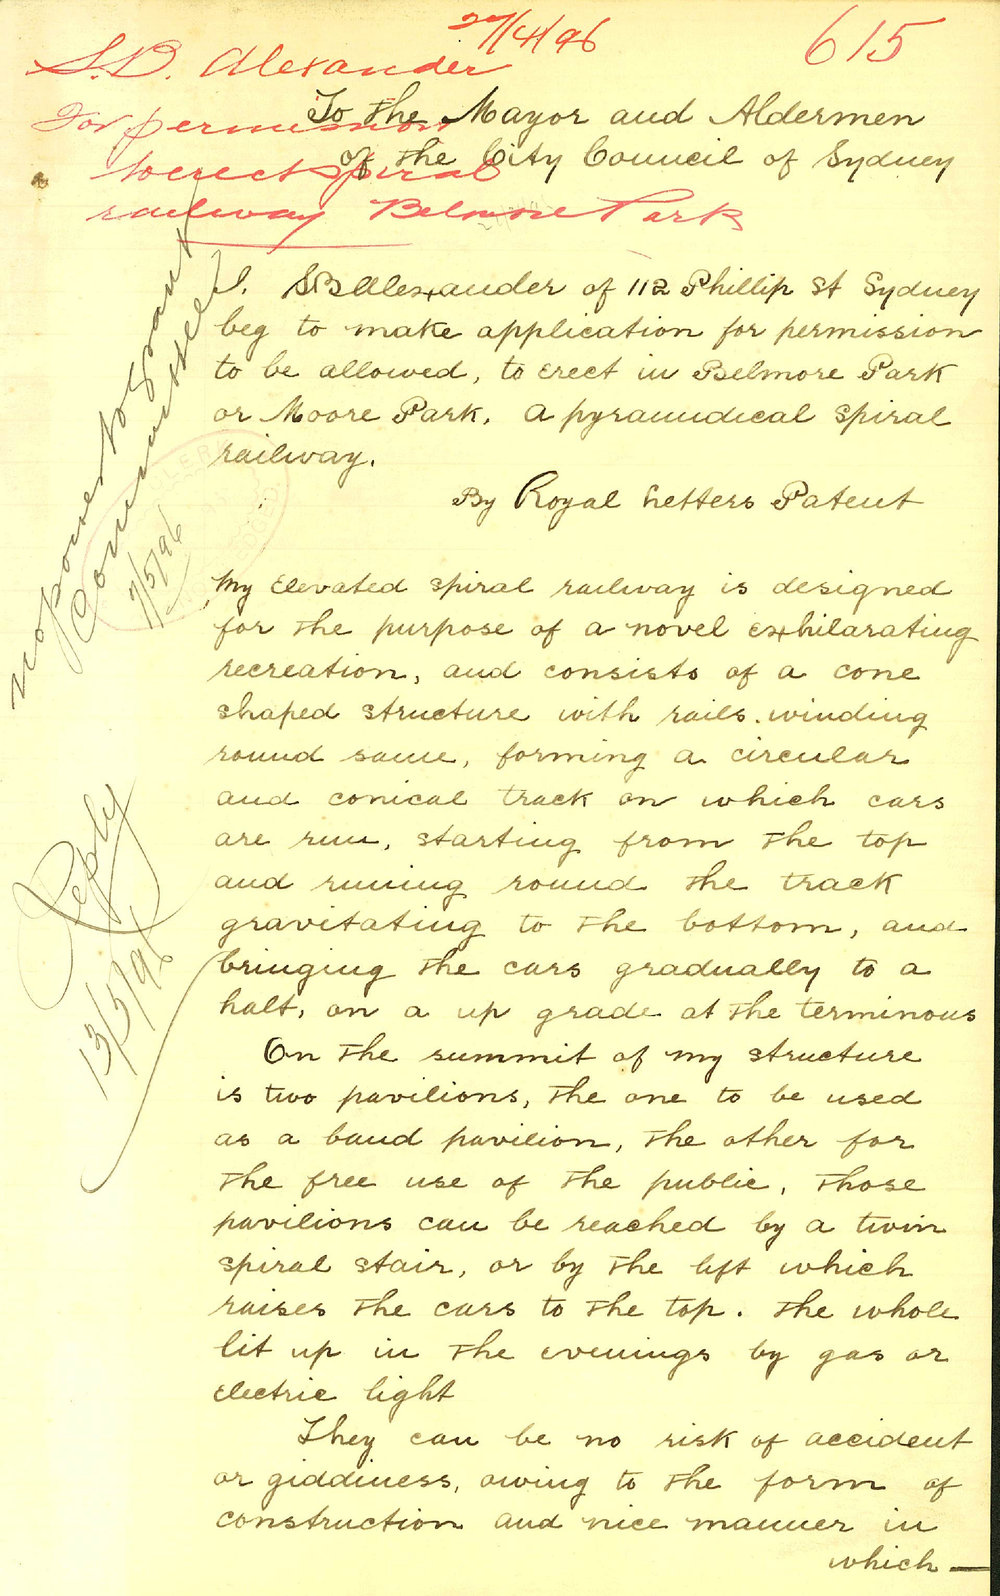 27/4/96
615
S.B. Alexander
For permission
to erect spiral
railway Belmore Park
To the Mayor and Aldermen
of the City Council of Sydney
no power to grant
Committee
7/5/96
I. SB Alexander of 112 Phillip St Sydney
beg to make application for permission
to be allowed, to erect in Belmore Park
or Moore Park. A pyramidical spiral
railway.
By Royal Letters Patent
My Elevated spiral railway is designed
for the purpose of a novel exhilarating
recreation, and consists of a cone
shaped structure with rails. winding
round same, forming a circular
and conical track on which cars
are run, starting from the top
and runing round the track
gravitating to the bottom, and
bringing the cars gradually to a
halt, on a up grade at the terminous
On the summit of my structure
is two pavilions, the one to be used
as a band pavilion, the other for
the free use of the public, those
pavilions can be reached by a twin
spiral stair, or by the lift which
raises the cars to the top. the whole
lit up in the evenings by gas or
electric light
They can be no risk of accident
or giddiness, owing to the form of
construction and nice manner in
which —
Reply
13/5/96